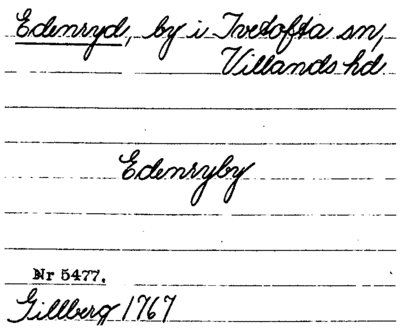 Edenryd, by i Ivetofta sn,
Villands hd
Edenryby
Nr 5477.
Gillberg 1767